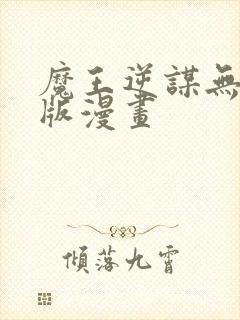 魔王逆謀無
版漫畫
傾落九霄